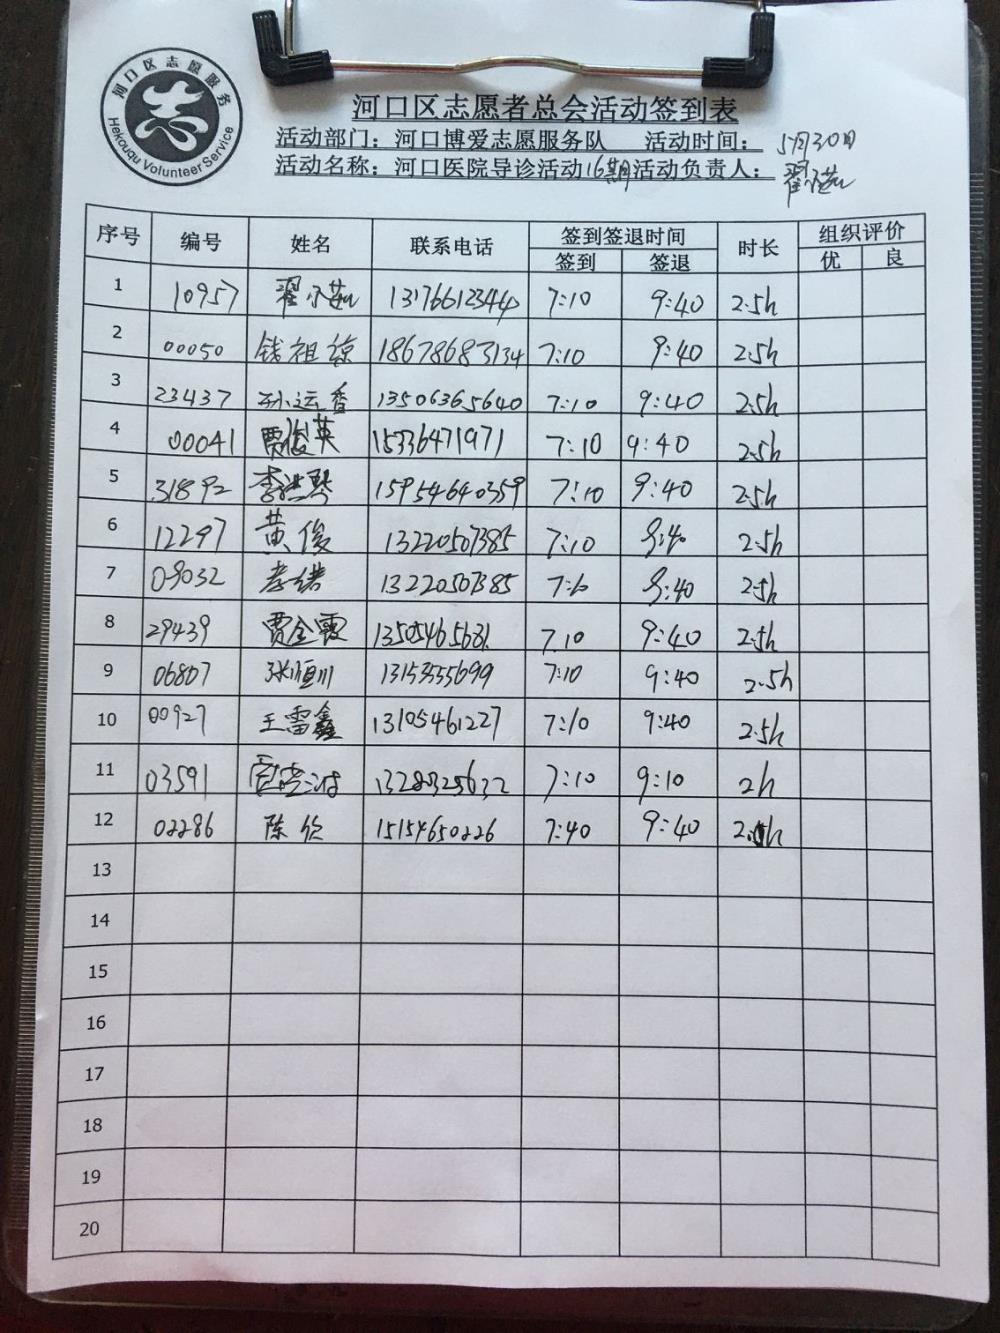 河口区志愿服务
志
Hekouqu Volunteer Service
河口区志愿者总会活动签到表
活动部门：河口博爱志愿服务队 活动时间：5月30日
活动名称：河口医院导诊活动16期活动负责人：翟
序号 编号 姓名 联系电话 签到签退时间 时长 组织评价
签到 签退 优 良
1 10957 翟 13176612344 7:10 9:40 2.5h
2 00050 钱祖琼 18678683134 7:10 9:40 2.5h
3 23437 孙运香 13506365640 7:10 9:40 2.5h
4 00041 贾俊英 15336471971 7:10 9:40 2.5h
5 31892 李洪琴 15954640359 7:10 9:40 2.5h
6 12297 黄俊 13220507385 7:10 9:40 2.5h
7 09032 13220507385 9:40 2.5h
8 29439 贾金霞 13505465681 7.10 9:40 2.5h
9 06807 张恒川 7:10 9:40 2.5h
10 00927 王雷鑫 13105461227 7:10 9:40 2.5h
11 03591 7:10 9:10 2h
12 02286 陈 15154650226 7:40 9:40
13
14
15
16
17
18
19
20